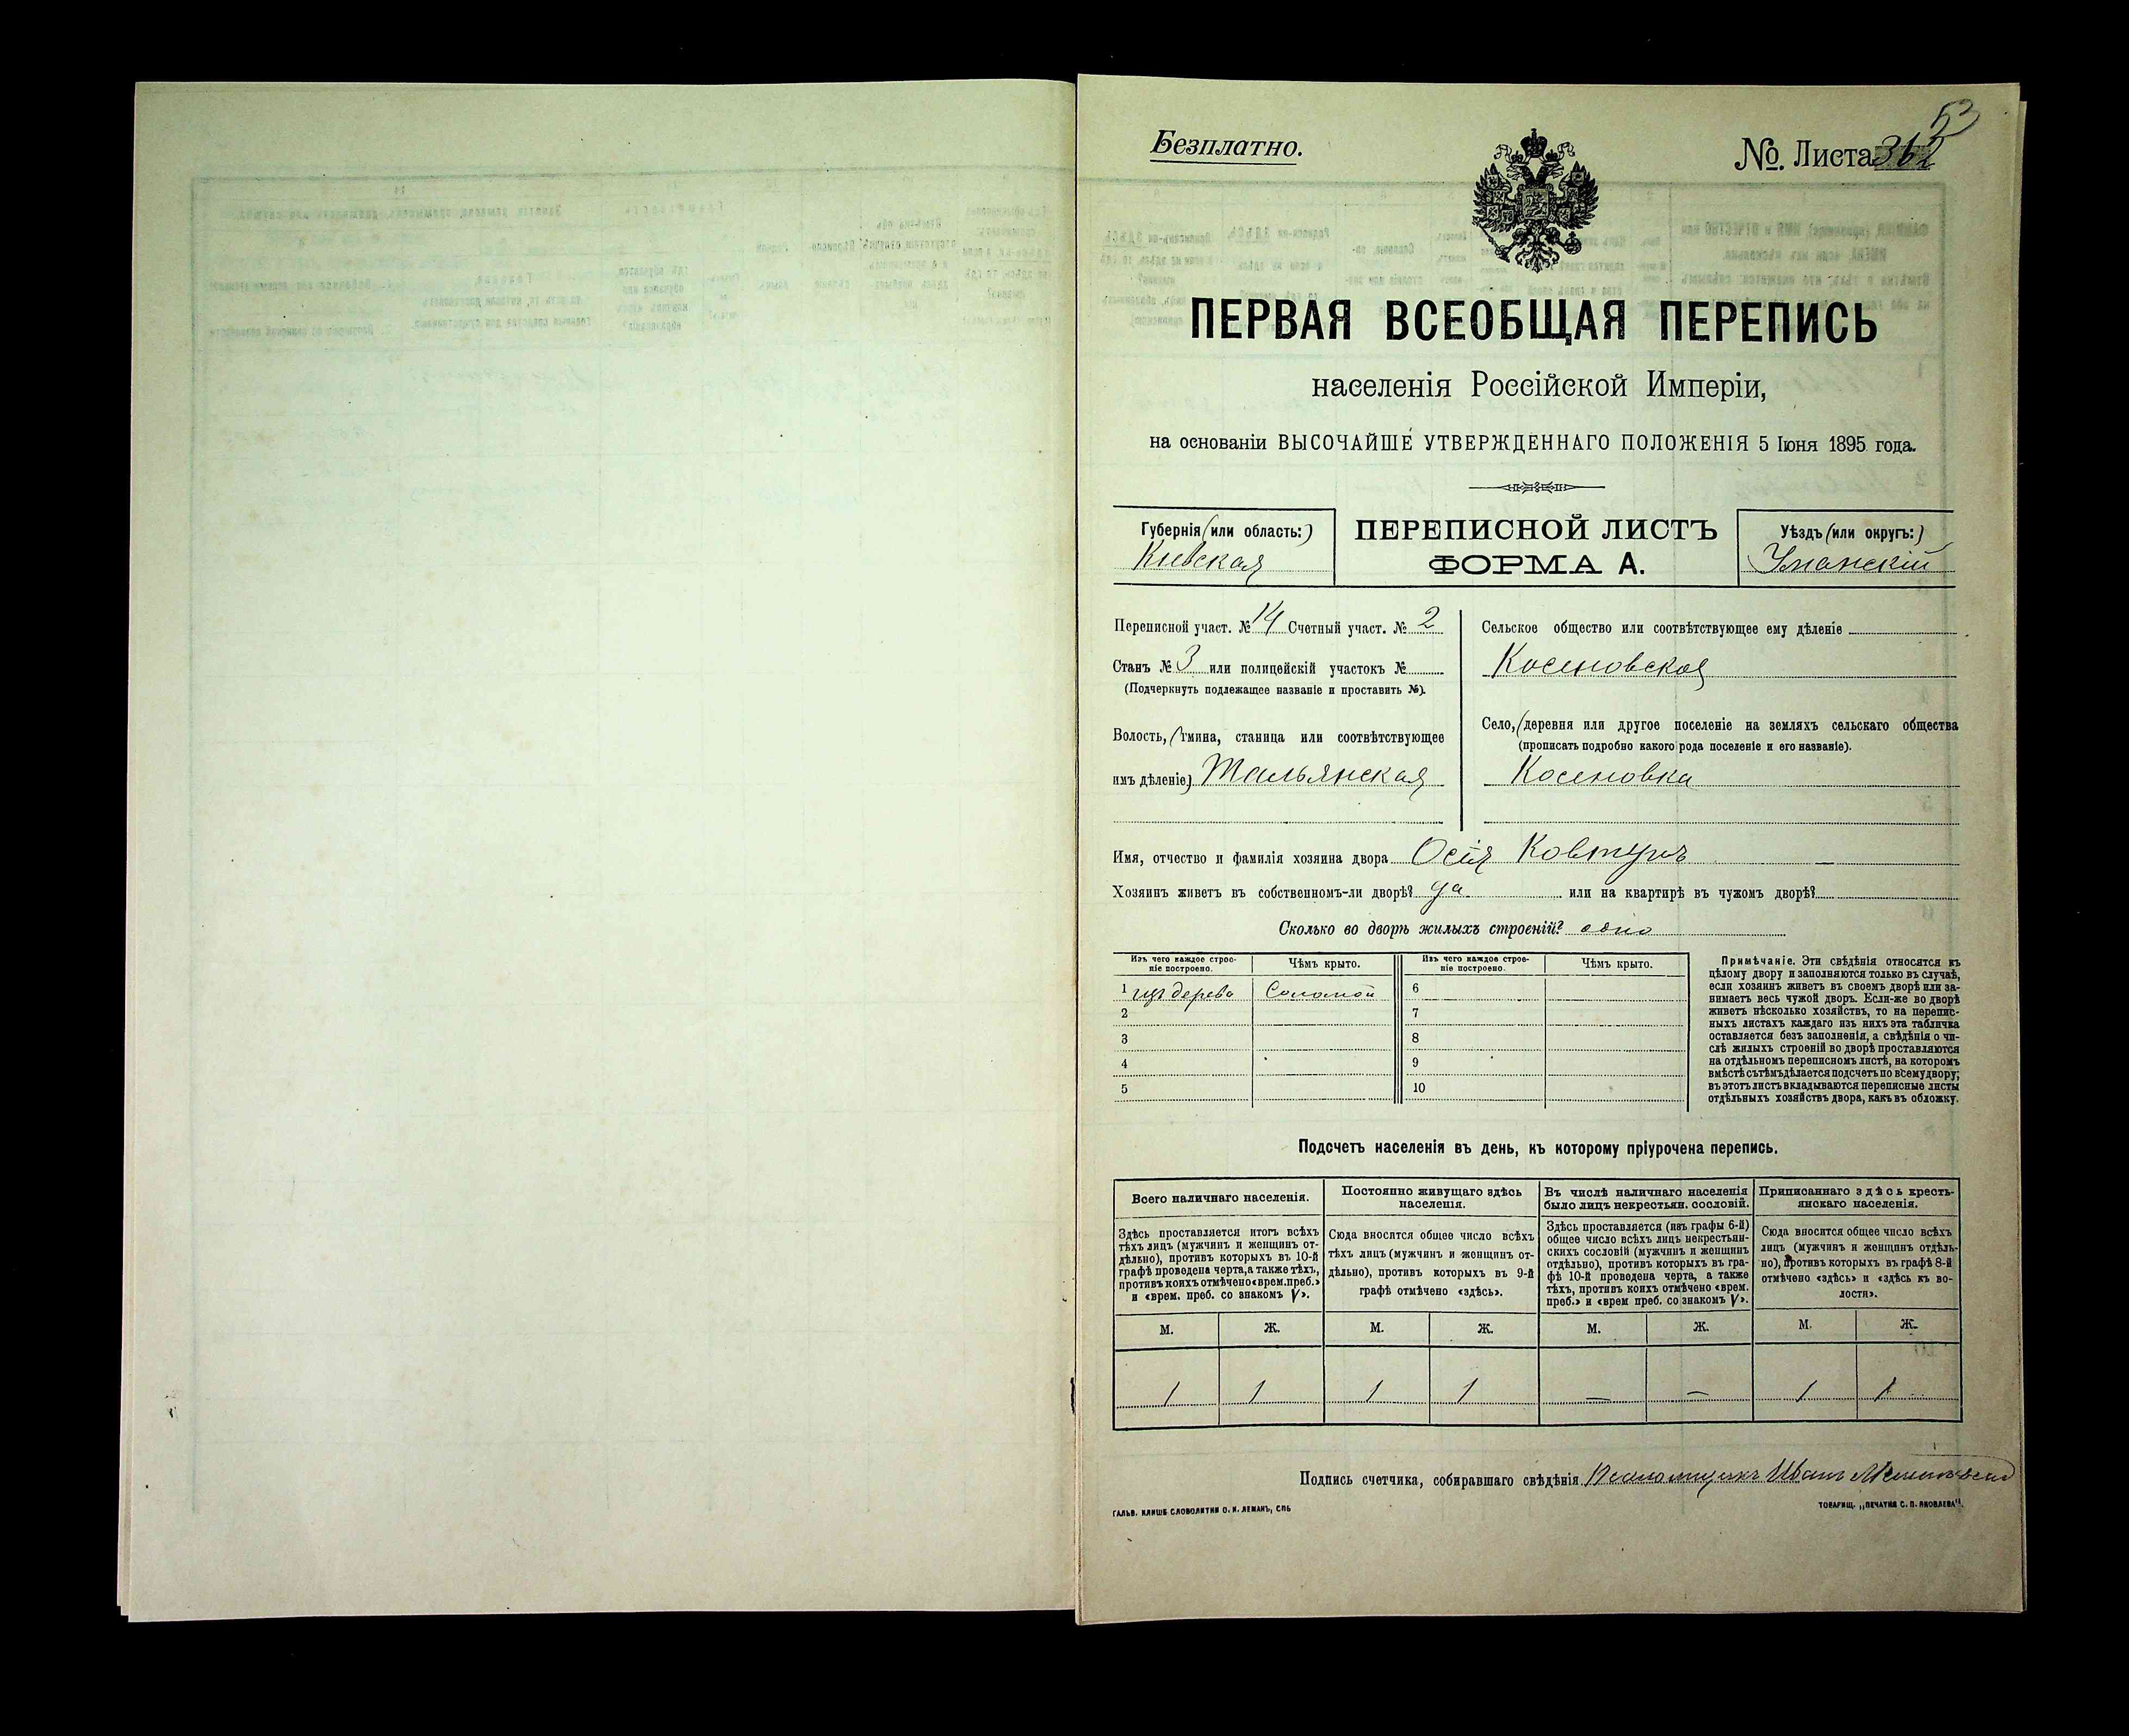 53
Безплатно.
№ Листа 362
ПЕРВАЯ ВСЕОБЩАЯ ПЕРЕПИСЬ
населенія Россійской Имперіи,
на основаніи ВЫСОЧАЙШЕ УТВЕРЖДЕННАГО ПОЛОЖЕНІЯ 5 Іюня 1895 года.
Губернія (или область:)
Кіевская
ПЕРЕПИСНОЙ ЛИСТЪ
ФОРМА А.
Уѣздъ (или округъ:)
Уманскій
Переписной участ. № 14 Счетный участ. № 2
Станъ № 3 или полицейскій участокъ №
(Подчеркнуть подлежащее названіе и проставить №).
Волость, (гмина, станица или соотвѣтствующее
имъ дѣленіе) Тальянская
Сельское общество или соотвѣтствующее ему дѣленіе
Косеновское
Село, (деревня или другое поселеніе на земляхъ сельскаго общества
(прописать подробно какого рода поселеніе и его названіе).
Косеновка
Имя, отчество и фамилія хозяина двора Осія Ковтунъ
Хозяинъ живетъ въ собственномъ-ли дворѣ? да или на квартирѣ въ чужомъ дворѣ?
Сколько во дворѣ жилыхъ строеній? одно
Изъ чего каждое строе-
ніе построено.
Чѣмъ крыто.
Изъ чего каждое строе-
ніе построено.
Чѣмъ крыто.
1 изъ дерева Соломой 6
2 7
3 8
4 9
5 10
Примѣчаніе. Эти свѣдѣнія относятся къ
цѣлому двору и заполняются только въ случаѣ,
если хозяинъ живетъ въ своемъ дворѣ или за-
нимаетъ весь чужой дворъ. Если-же во дворѣ
живетъ нѣсколько хозяйствъ, то на перепис-
ныхъ листахъ каждаго изъ нихъ эта табличка
оставляется безъ заполненія, а свѣдѣнія о чи-
слѣ жилыхъ строеній во дворѣ проставляются
на отдѣльномъ переписномъ листѣ, на которомъ
вмѣстѣ съ тѣмъ дѣлается подсчетъ по всему двору;
въ этотъ листъ вкладываются переписные листы
отдѣльныхъ хозяйствъ двора, какъ въ обложку.
Подсчетъ населенія въ день, къ которому пріурочена перепись.
Всего наличнаго населенія.
Здѣсь проставляется итогъ всѣхъ
тѣхъ лицъ (мужчинъ и женщинъ от-
дѣльно), противъ которыхъ въ 10-й
графѣ проведена черта, а также тѣхъ,
противъ коихъ отмѣчено «врем. преб.»
и «врем. преб. со знакомъ V».
Постоянно живущаго здѣсь
населенія.
Сюда вносится общее число всѣхъ
тѣхъ лицъ (мужчинъ и женщинъ от-
дѣльно), противъ которыхъ въ 9-й
графѣ отмѣчено «здѣсь».
Въ числѣ наличнаго населенія
было лицъ некрестьян. сословій.
Здѣсь проставляется (изъ графы 6-й)
общее число всѣхъ лицъ некрестьян-
скихъ сословій (мужчинъ и женщинъ
отдѣльно), противъ которыхъ въ гра-
фѣ 10-й проведена черта, а также
тѣхъ, противъ коихъ отмѣчено «врем.
преб.» и «врем преб. со знакомъ V».
Приписаннаго здѣсь кресть-
янскаго населенія.
Сюда вносится общее число всѣхъ
лицъ (мужчинъ и женщинъ отдѣль-
но), противъ которыхъ въ графѣ 8-й
отмѣчено «здѣсь» и «здѣсь къ во-
лости».
М. Ж. М. Ж. М. Ж. М. Ж.
1 1 1 1 — — 1 1
Подпись счетчика, собиравшаго свѣдѣнія Иванъ
ГАЛЬВ. КЛИШЕ СЛОВОЛИТНИ О. И. ЛЕМАНЪ, СПБ
ТОВАРИЩ. „ПЕЧАТНЯ С. П. ЯКОВЛЕВА".